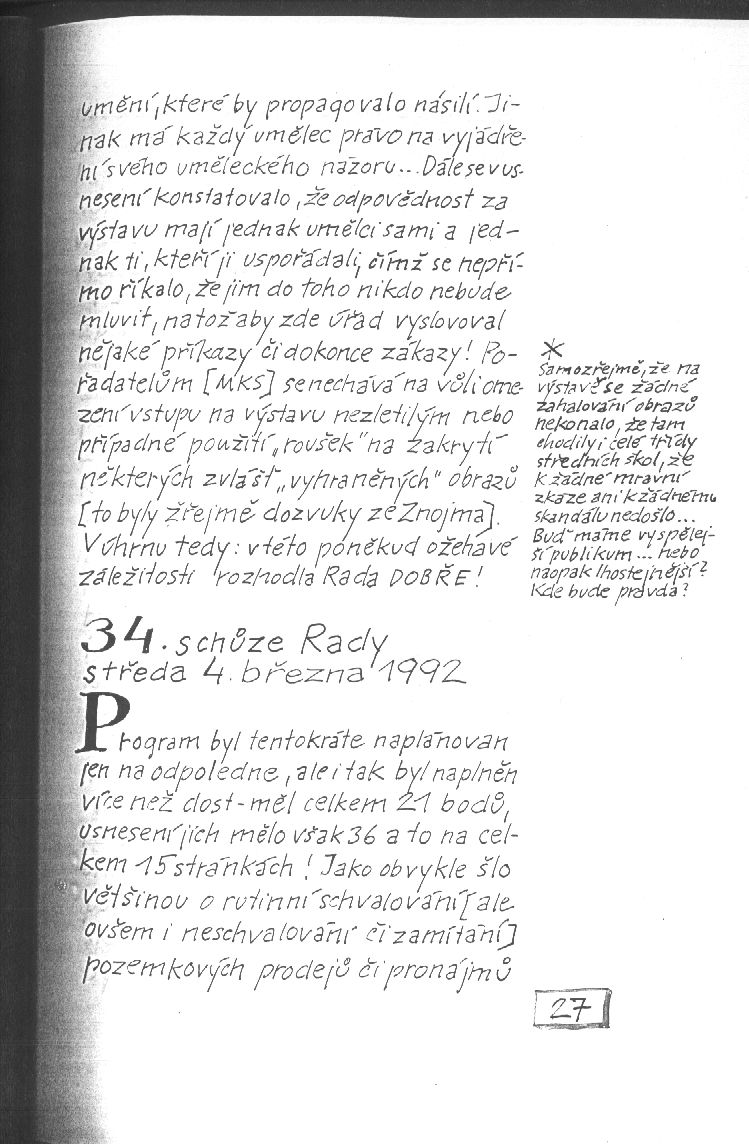 umění, které by propagovalo násilí. Ji-
nak má každý umělec právo na vyjádře-
ní svého uměleckého názoru... Dále se v us-
nesení konstatovalo, že odpovědnost za
výstavu mají jednak umělci sami a jed-
nak ti, kteří ji uspořádali, čímž se nepří-
mo říkalo, že jim do toho nikdo nebude
mluvit, natož aby zde úřad vyslovoval
nějaké příkazy či dokonce zákazy! Po-
řadatelům [MKS] se nechává na vůli ome-
zení vstupu na výstavu nezletilým nebo
případné použití „roušek" na zakrytí
některých zvlášť „vyhraněných" obrazů
[to byly zřejmě dozvuky ze Znojma].
V úhrnu tedy: v této poněkud ožehavé
záležitosti rozhodla Rada DOBŘE!
*
Samozřejmě, že na
výstavě se žádné
zahalování obrazů
nekonalo, že tam
chodily i celé třídy
středních škol, že
k žádné mravní
zkáze ani k žádnému
skandálu nedošlo...
Buď máme vyspělej-
ší publikum... nebo
naopak lhostejnější?
Kde bude pravda?
34. schůze Rady
středa 4. března 1992
Program byl tentokráte naplánován
jen na odpoledne, ale i tak byl naplněn
více než dost - měl celkem 21 bodů,
usnesení jich mělo však 36 a to na cel-
kem 15 stránkách! Jako obvykle šlo
většinou o rutinní schvalování [ale
ovšem i neschvalování či zamítání]
pozemkových prodejů či pronájmů
27